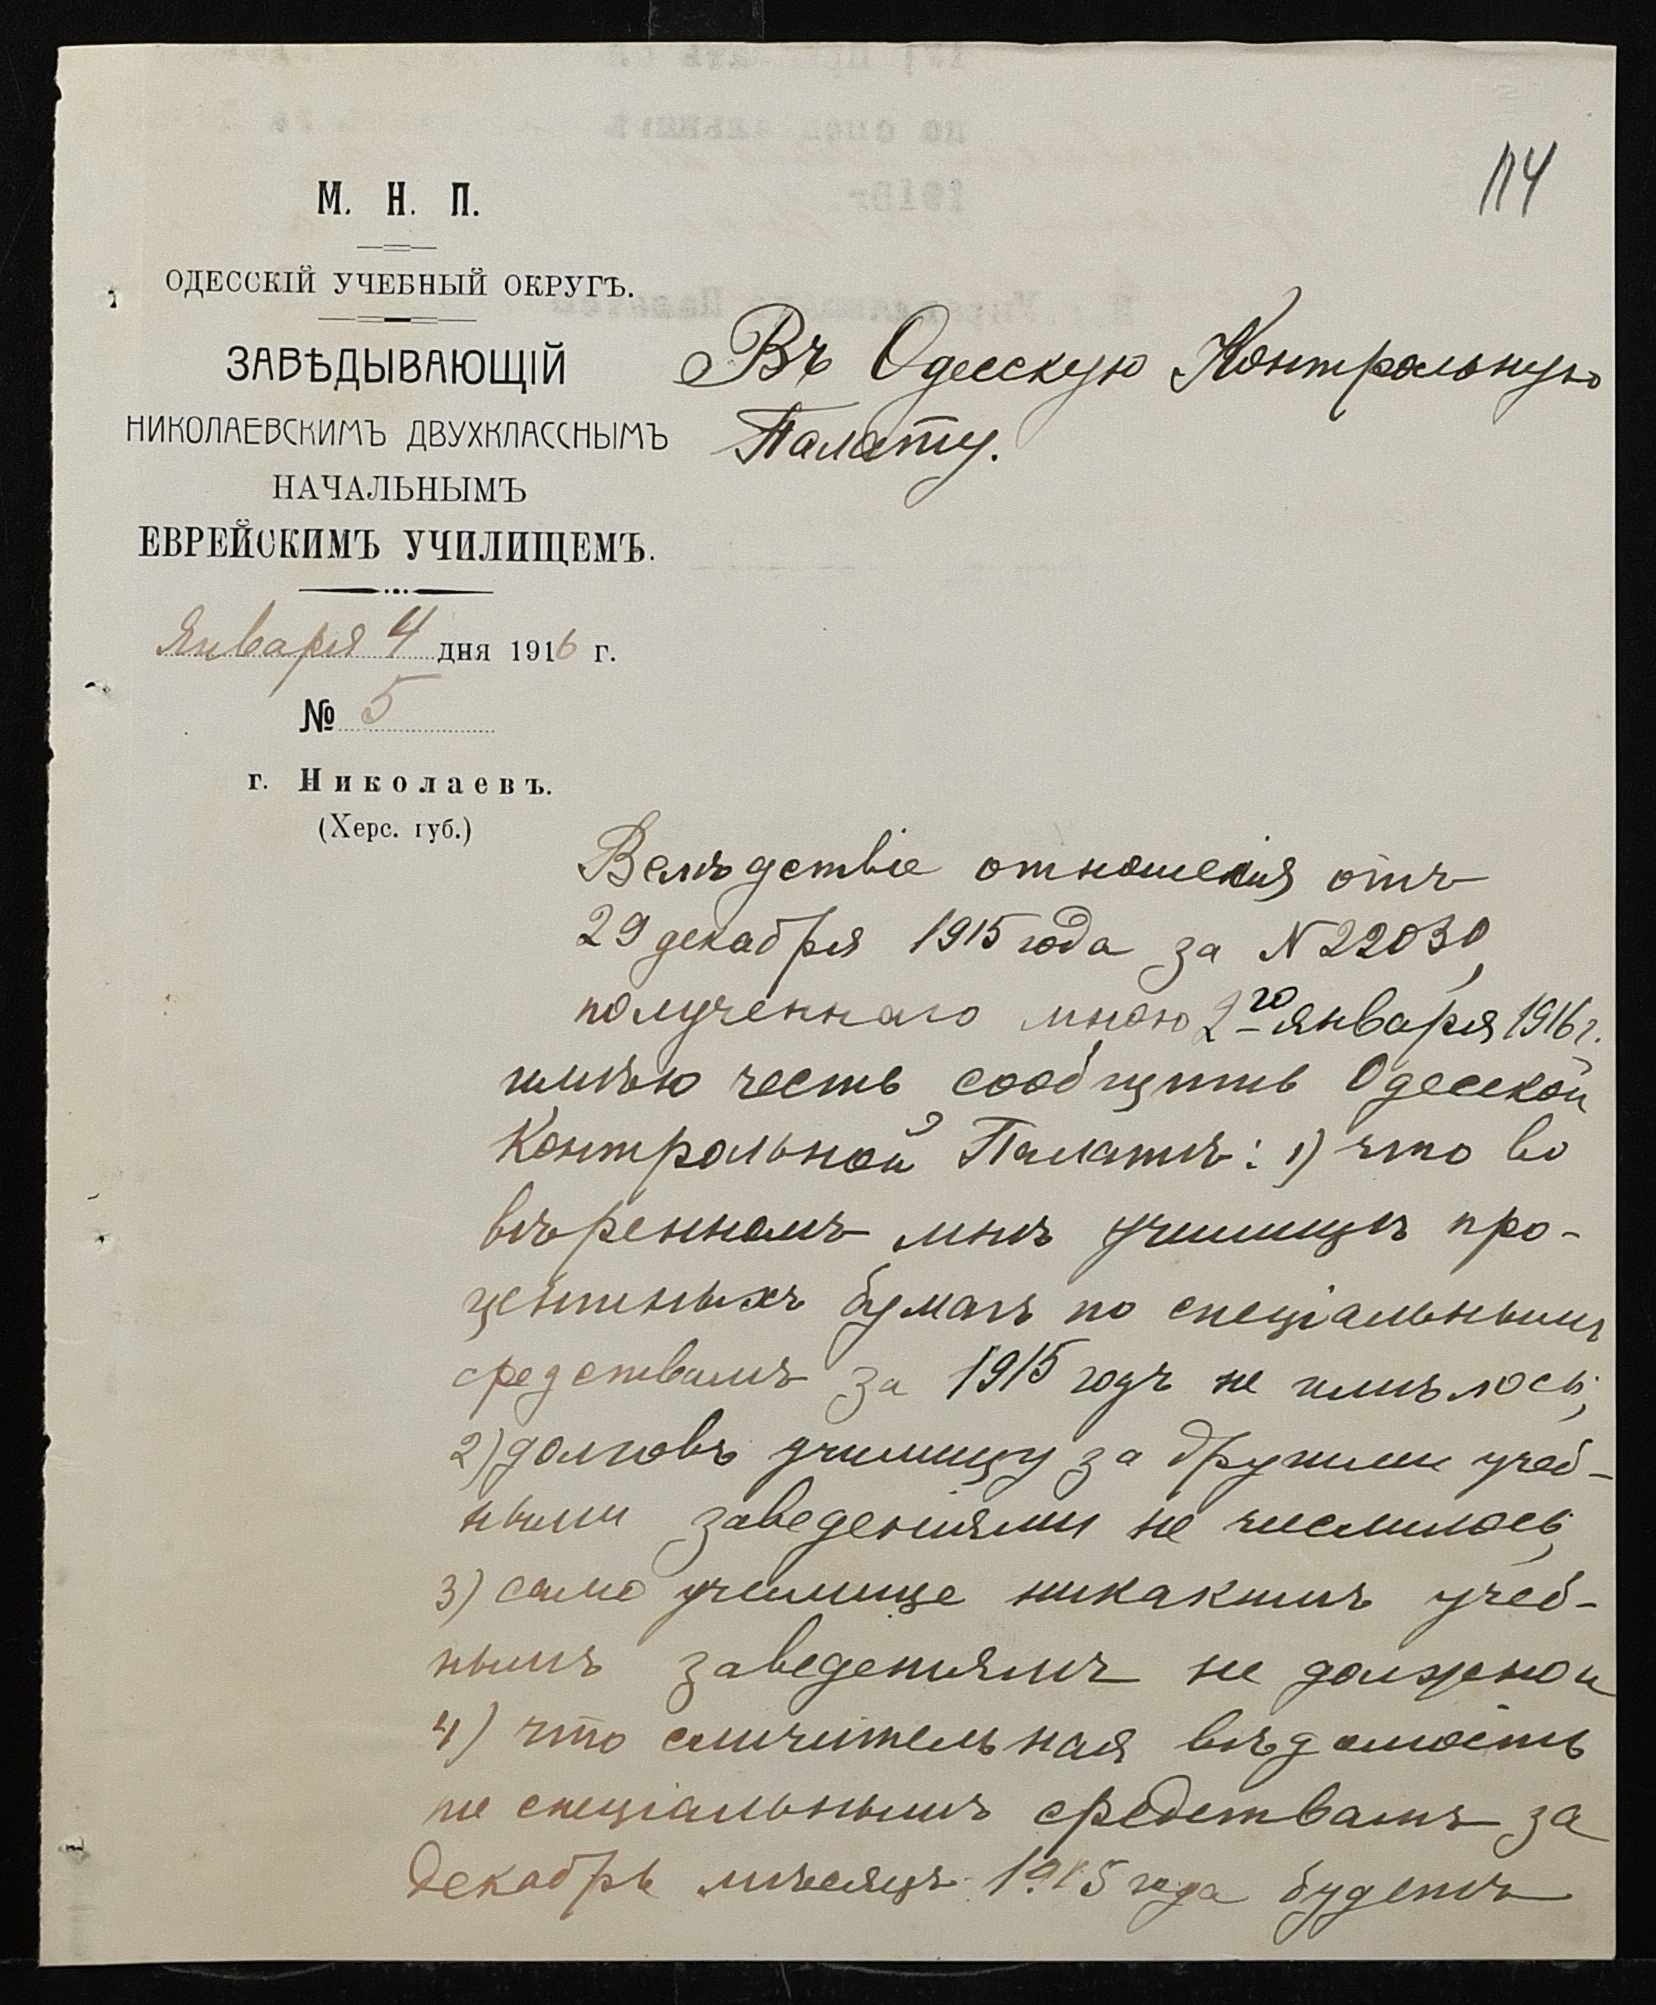 114
М. Н. П.
ОДЕССКІЙ УЧЕБНЫЙ ОКРУГЪ.
ЗАВѢДЫВАЮЩІЙ
НИКОЛАЕВСКИМЪ ДВУХКЛАССНЫМЪ
НАЧАЛЬНЫМЪ
ЕВРЕЙСКИМЪ УЧИЛИЩЕМЪ.
Января 4 дня 1916 г.
№ 5
г. Николаевъ.
(Херс. губ.)
Въ Одесскую Контрольную
Палату.
Вслѣдствіе отношенія отъ
29 декабря 1915 года за N 22030,
полученнаго мною 2го января 1916 г.
имѣю честь сообщить Одесской
Контрольной Палатѣ: 1) что во
ввѣренномъ мнѣ училищѣ про-
центныхъ бумагъ по спеціальнымъ
средствамъ за 1915 годъ не имѣлось;
2) долговъ училищу за другими учеб-
ными заведеніями не числилось;
3) само училище никакимъ учеб-
нымъ заведеніямъ не должно и
4) что сличительная вѣдомость
по спеціальнымъ средствамъ за
Декабрь мѣсяцъ 1915 года будетъ